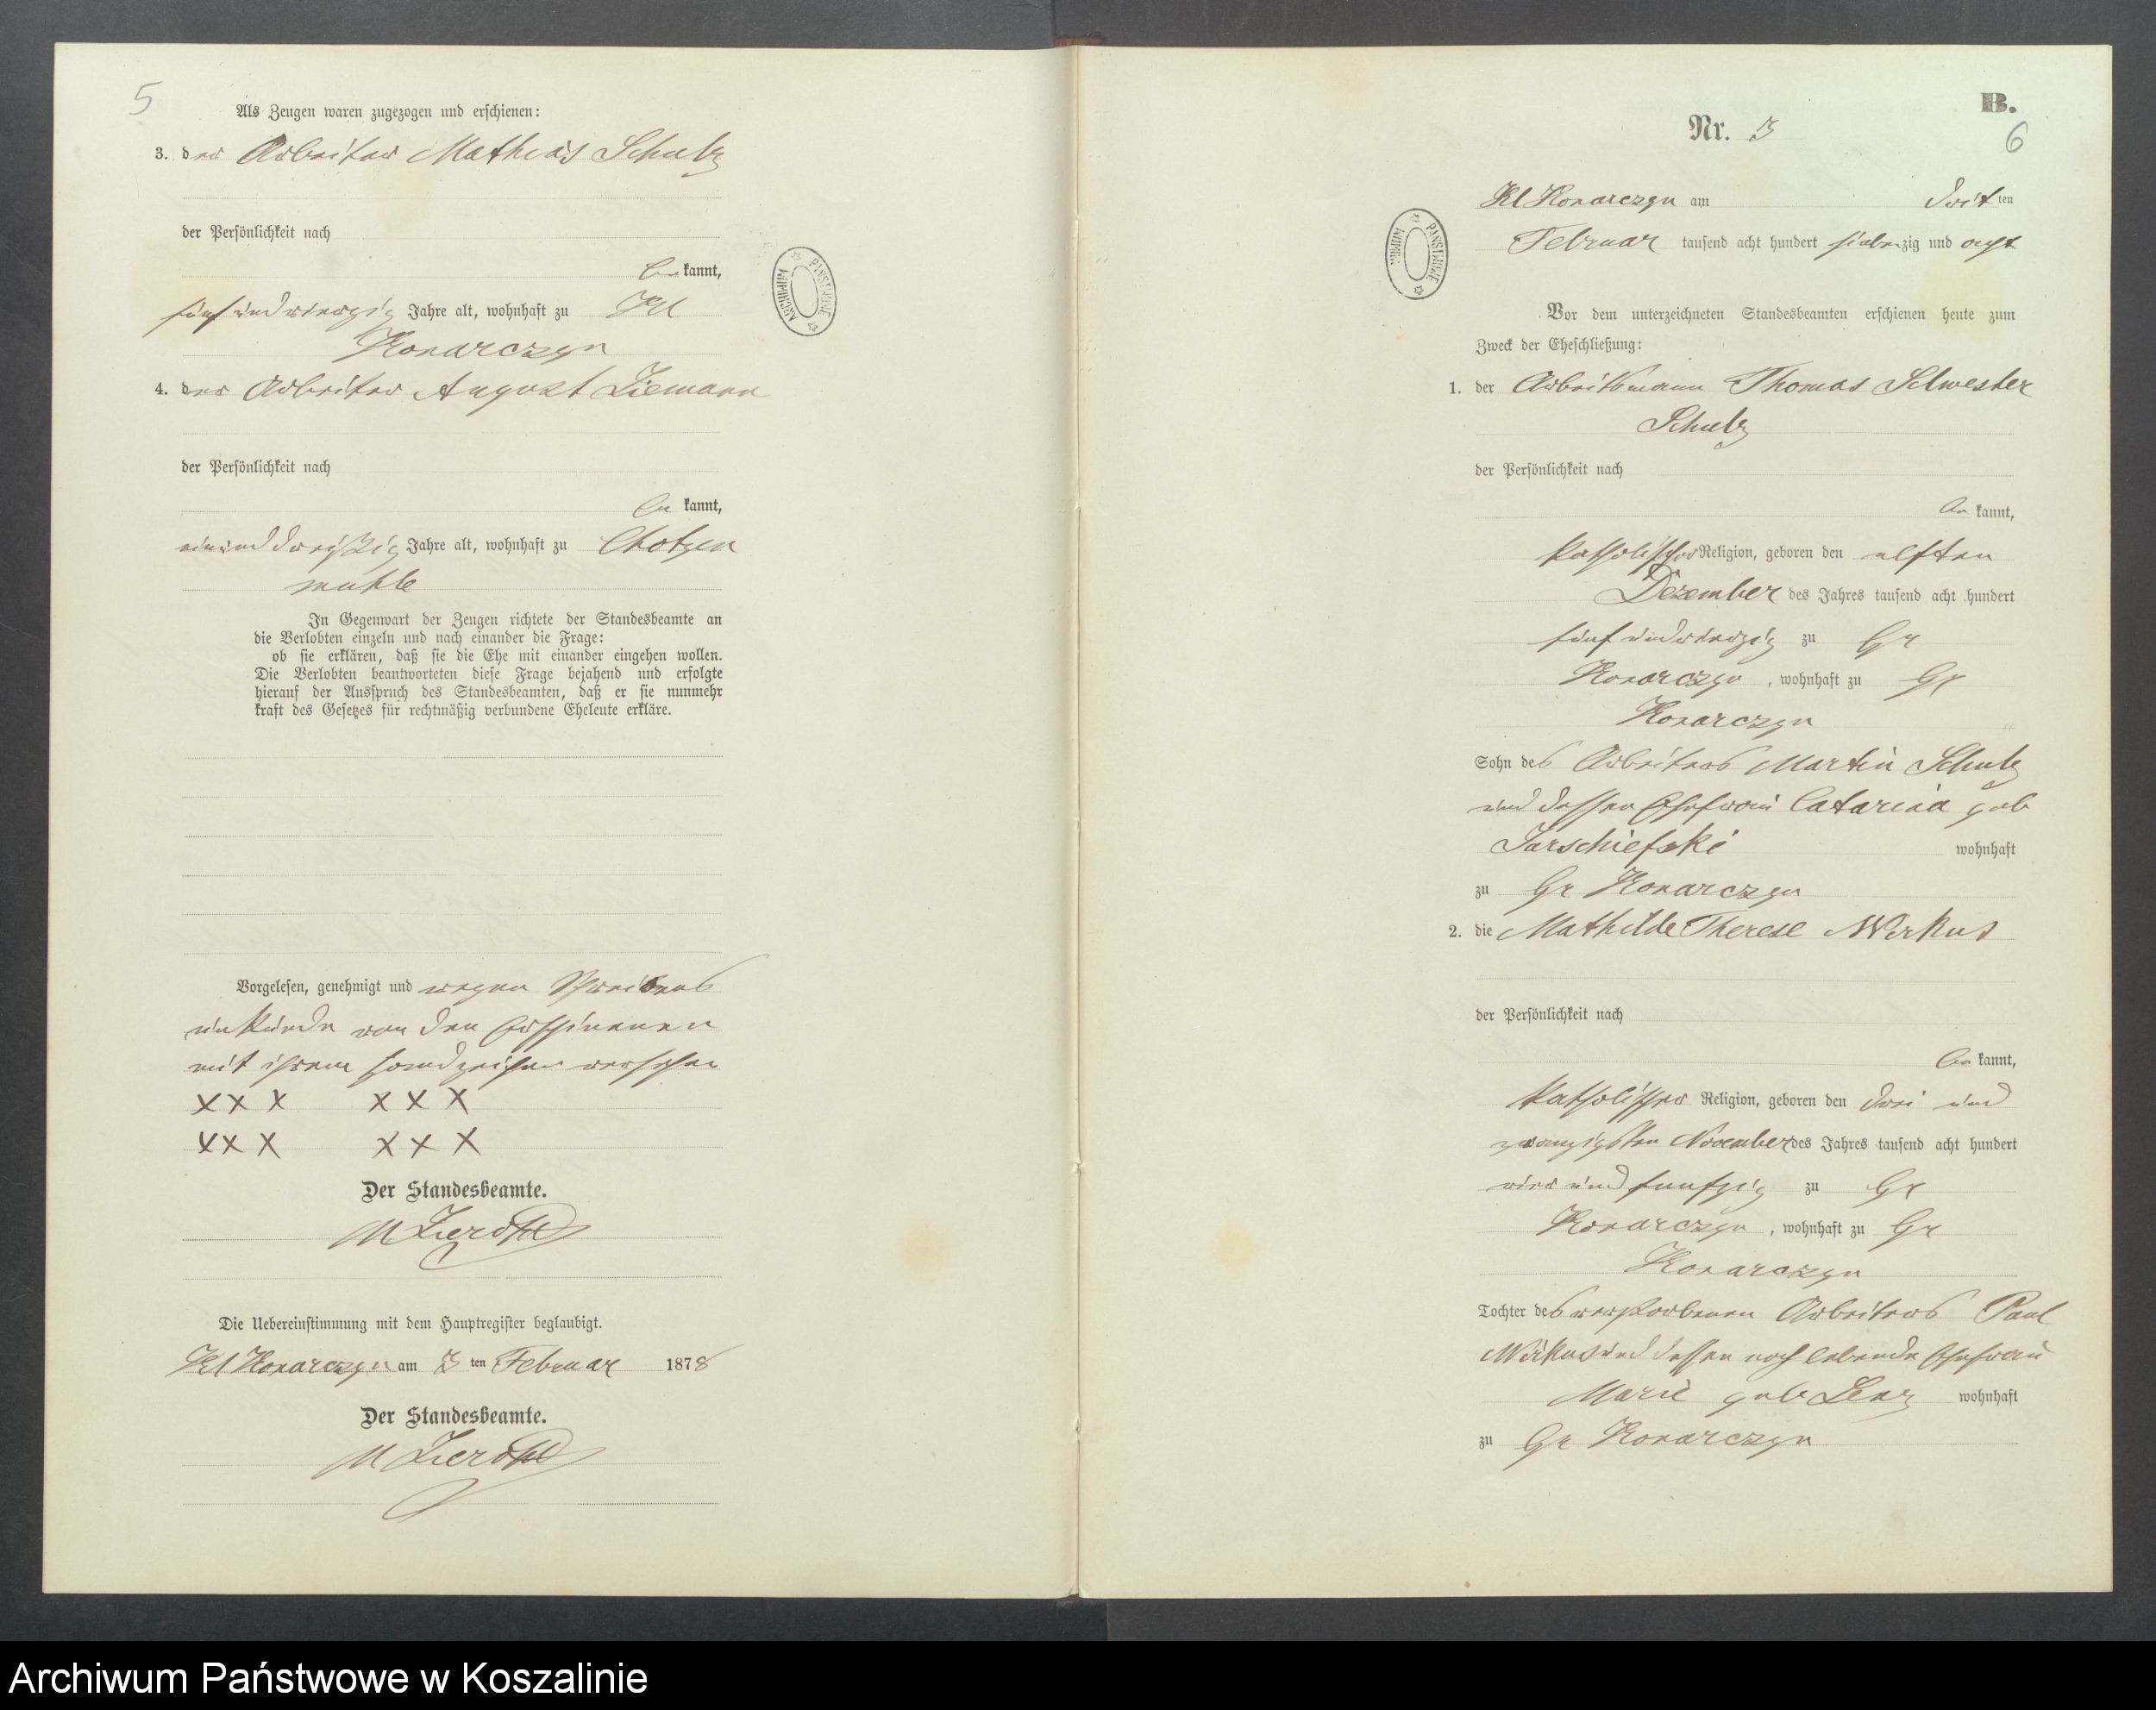 5
Als Zeugen waren zugezogen und erschienen:
3. der Arbeiter Mathias Schulz
der Persönlichkeit nach
be kannt,
fünf und vierzig Jahre alt, wohnhaft zu Kl
Konarczyn
4. der Arbeiter August Ziemann
der Persönlichkeit nach
be kannt,
ein und dreißig Jahre alt, wohnhaft zu Chotzen
mühle
In Gegenwart der Zeugen richtete der Standesbeamte an
die Verlobten einzeln und nach einander die Frage:
ob sie erklären, daß sie die Ehe mit einander eingehen wollen.
Die Verlobten beantworteten diese Frage bejahend und erfolgte
hierauf der Ausspruch des Standesbeamten, daß er sie nunmehr
kraft des Gesetzes für rechtmäßig verbundene Eheleute erkläre.
Vorgelesen, genehmigt und wegen Schreibens
unkunde von den Erschienenen
mit ihrem Handzeichen versehen
XXX XXX
XXX XXX
Der Standesbeamte.
Die Uebereinstimmung mit dem Hauptregister beglaubigt.
Kl Konarczyn am 3 ten Februar 1878
Der Standesbeamte.
ARCHIWUM PAŃSTWOWE
B.
Nr. 3
6
Kl Konarczyn am drit ten
Februar tausend acht hundert siebenzig und acht
ARCHIWUM PAŃSTWOWE
Vor dem unterzeichneten Standesbeamten erschienen heute zum
Zweck der Eheschließung:
1. der Arbeitsmann Thomas Silwester
Schulz
der Persönlichkeit nach
be kannt,
katholischer Religion, geboren den elften
Dezember des Jahres tausend acht hundert
fünf und vierzig zu Gr
Konarczyn, wohnhaft zu Gr
Konarczyn
Sohn des Arbeiters Martin Schulz
und dessen Ehefrau Catarina geb
Jarschiefski wohnhaft
zu Gr Konarczyn
2. die Mathilde Therese Wirkus
der Persönlichkeit nach
be kannt,
katholischer Religion, geboren den drei und
zwanzigsten November des Jahres tausend acht hundert
vier und funfzig zu Gr
Konarczyn, wohnhaft zu Gr
Konarczyn
Tochter des verstorbenen Arbeiters Paul
Wirkus und dessen noch lebende Ehefrau
Marie geb Lenz wohnhaft
zu Gr Konarczyn
Archiwum Państwowe w Koszalinie